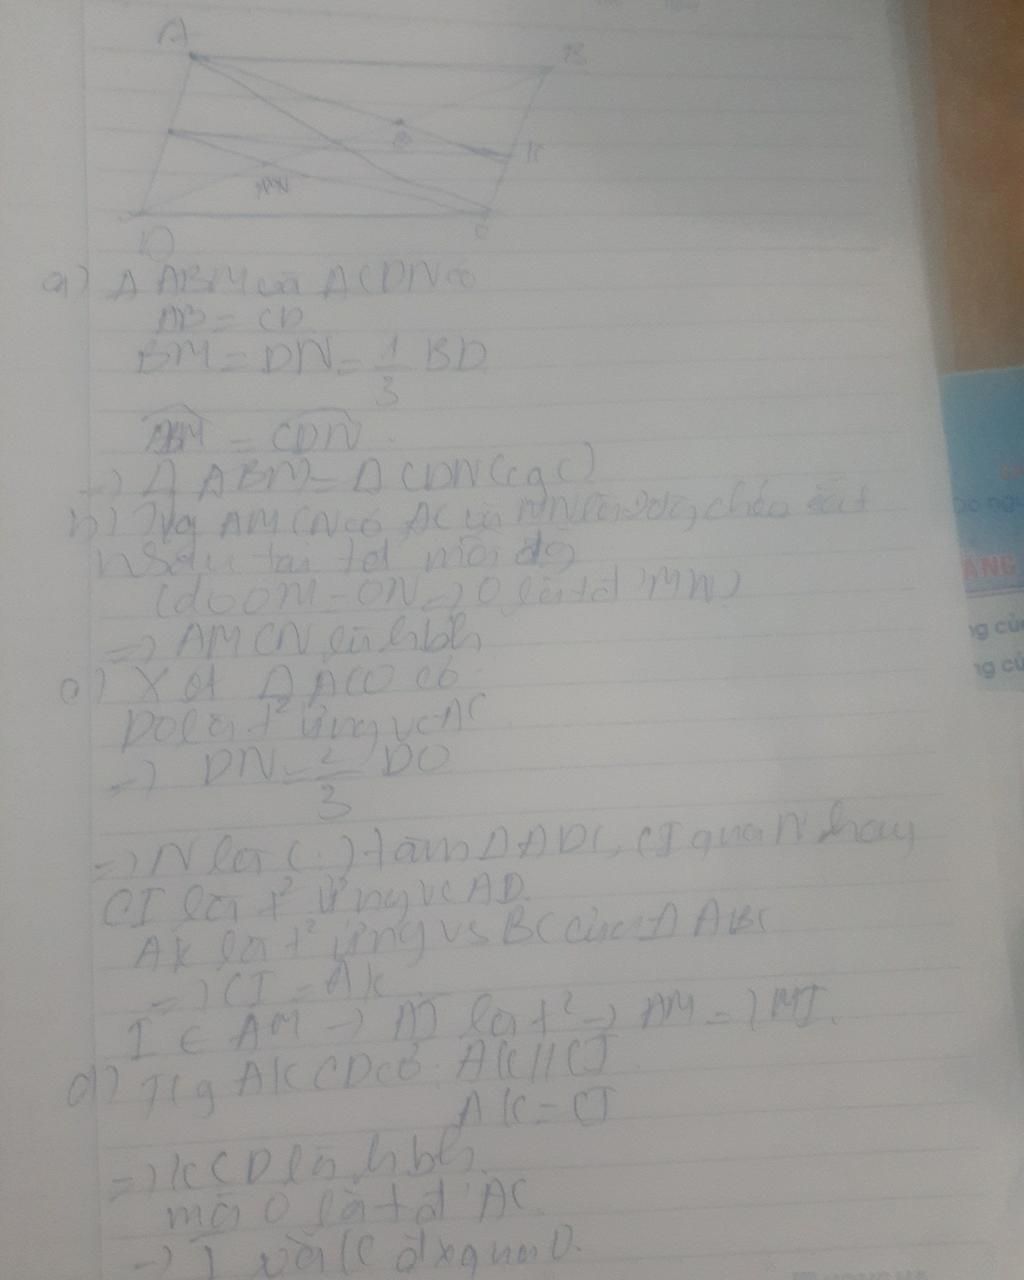 A
B
K
N
D
C
a) Δ ABM và Δ CDN có
AB = CD
BM = DN = 1/3 BD
ABM = CDN
=> Δ ABM = Δ CDN (cgc)
b) Tvg AMCN có AC và MN là 2 đg chéo cắt
nhau tại tđ mỗi đg
(do OM = ON => O là tđ MN)
=> AMCN là hbh
c) Xét Δ ACD có
DO là t² ứng vs AC
=> DN = 2/3 DO
=> N là (.) tâm Δ ADC, CI qua N hay
CI là t² ứng vs AD.
AK là t² ứng vs BC của Δ ABC
=> CI = AK
I ∈ AM là t² => AM =
d) AK CD có: AK // CI
AK = CI
=> KCD là hbh
mà O là tđ AC
=> I và K đx qua O.
ANG
g củ
ng củ